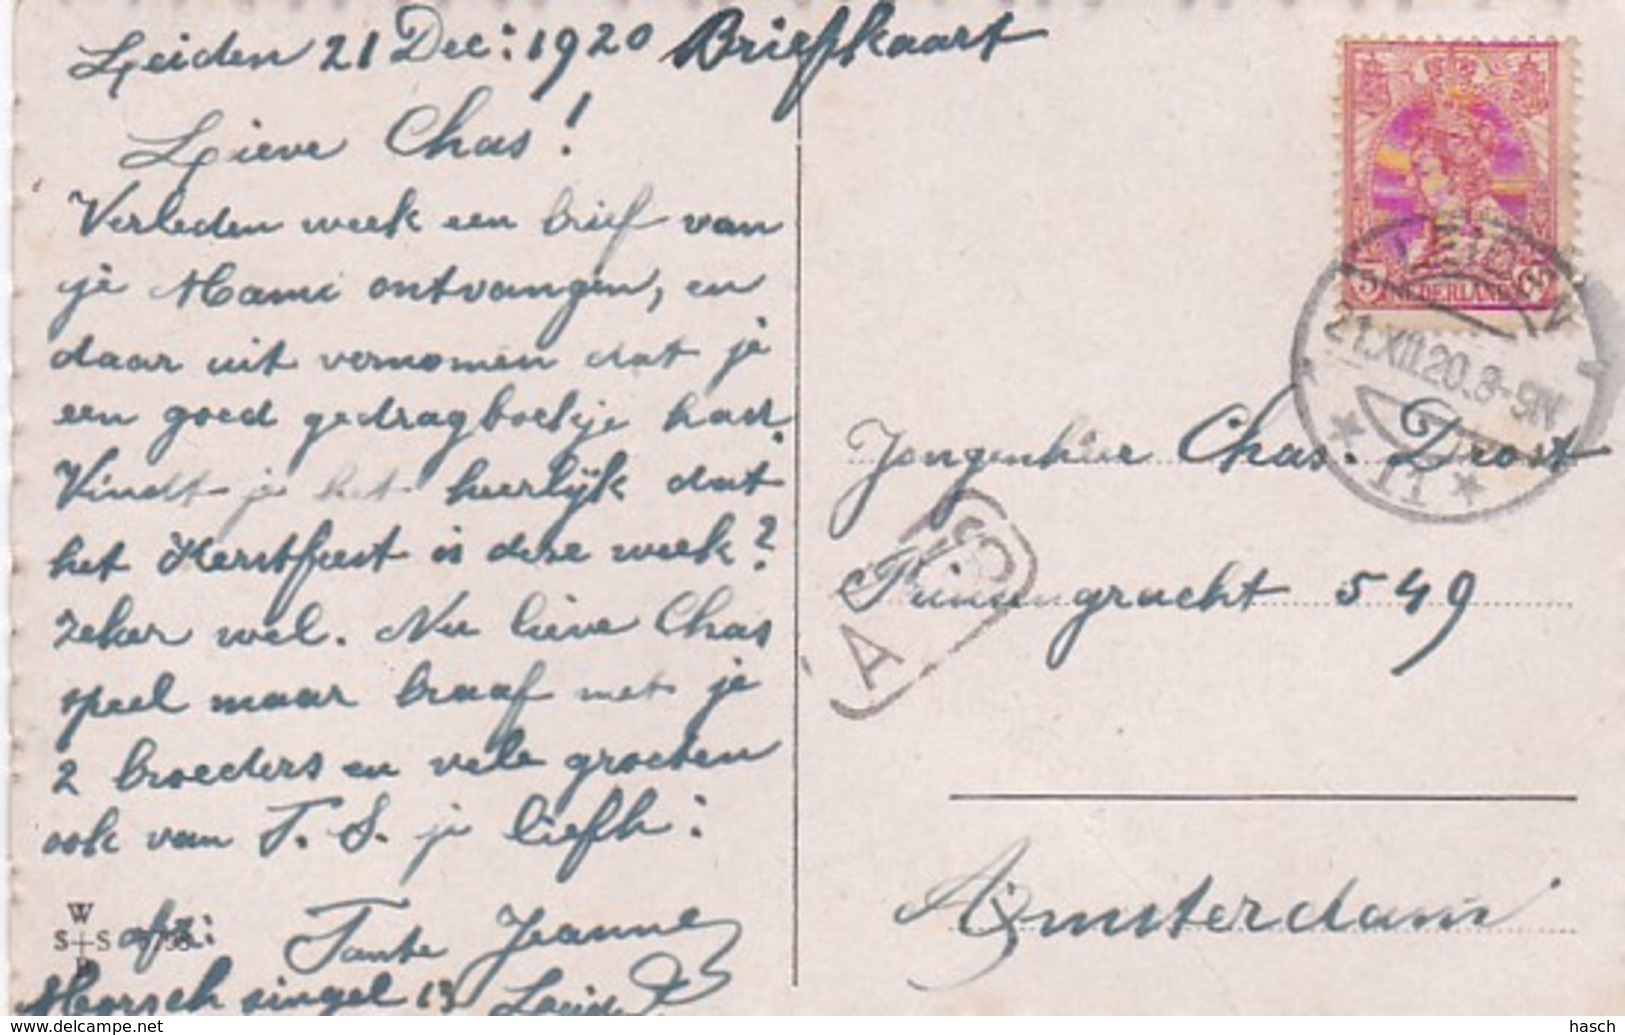 Leiden 21 Dec: 1920 Briefkaart
Lieve Chas!
Verleden week een brief van
je Mami ontvangen, en
daar uit vernomen dat je
een goed gedragboekje hast.
Vindt je het heerlijk dat
het Kerstfeest is deze week?
Zeker wel. Nu lieve Chas
speel maar braaf met je
2 broeders en vele groeten
ook van T. S. je liefh:
afz: Tante Jeanne
Morsch singel 13 Leiden
W
S+S
B
NEDERLAND
5
LEIDEN
21.XII.20.8-9N
11
Jongenheer Chas. Drost
Prinsengracht 549
A
Amsterdam
www.delcampe.net
hasch